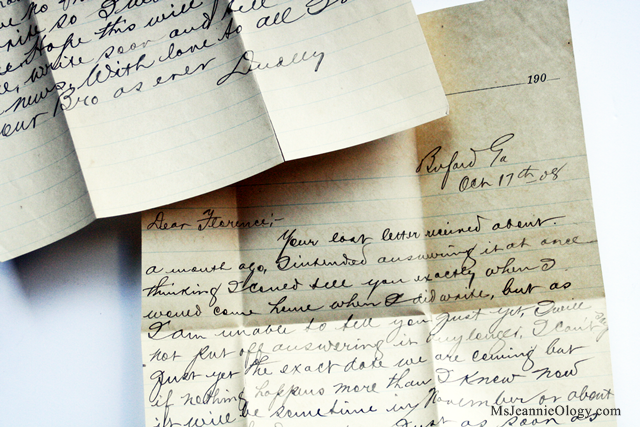 write so I
hope this will
write soon and tell
news. With love to all
your Bro as ever Dudly
190
Buford Ga
Oct 17th 08
Dear Florence;-
Your last letter recived about
a mouth ago, I intended answering it at once
thinking I could tell you exactly when I
would come home when I did write, but as
I am unable to tell you just yet, I will
not put off answering it any longer. I can't say
just yet the exact date we are coming but
if nothing happens more than I know now
it will be sometime in November or about
just as soon as
MsJeannieOlogy.com